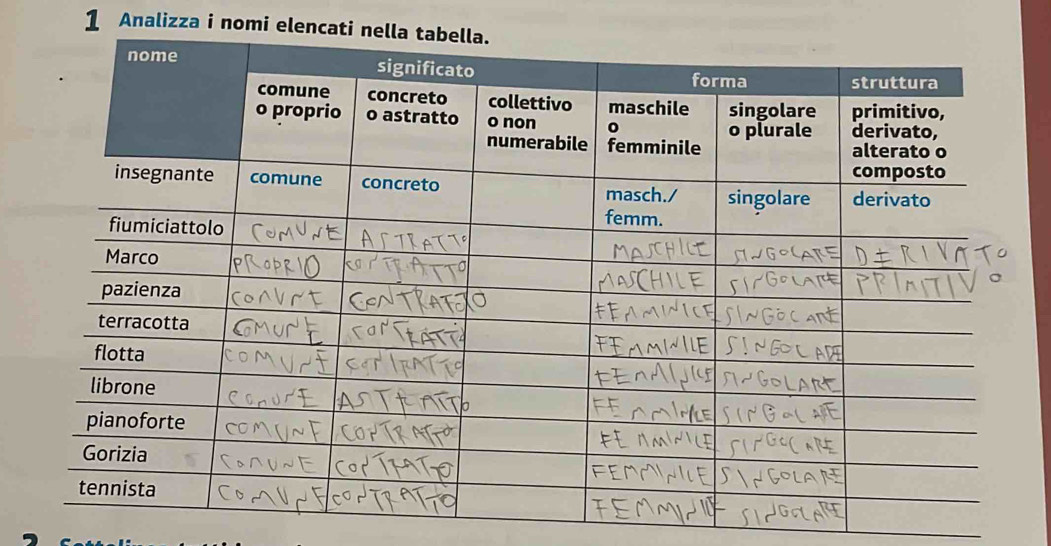 1 Analizza i nomi elencati nella tabella.
nome significato forma struttura
comune o proprio concreto o astratto collettivo o non numerabile maschile o femminile singolare o plurale primitivo, derivato, alterato o composto
insegnante comune concreto masch./ femm. singolare derivato
fiumiciattolo COMUNE ASTRATTO MASCHILE SINGOLARE DERIVATO
Marco PROPRIO CONTRATTO MASCHILE SINGOLARE PRIMITIVO
pazienza COMUNE CONTRATTO FEMMINILE SINGOLARE
terracotta COMUNE CONTRATTO FEMMINILE SINGOLARE
flotta COMUNE CONTRATTO FEMMINILE SINGOLARE
librone COMUNE ASTRATTO FEMMINILE SINGOLARE
pianoforte COMUNE CONTRATTO FEMMINILE SINGOLARE
Gorizia COMUNE CONTRATTO FEMMINILE SINGOLARE
tennista COMUNE CONTRATTO FEMMINILE SINGOLARE